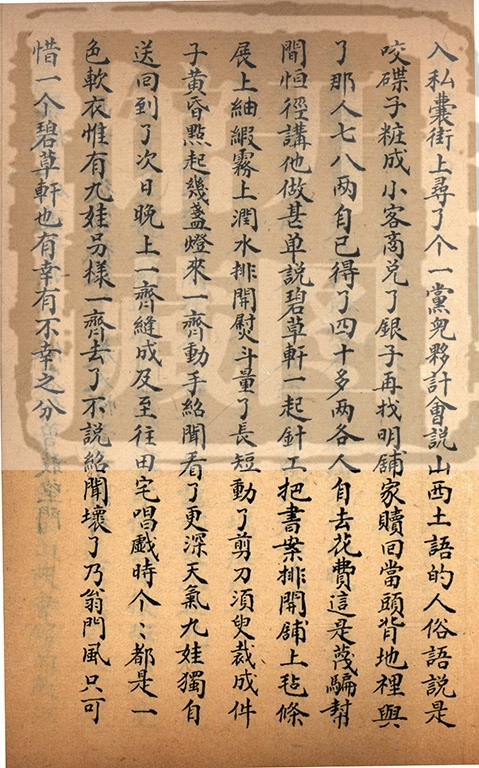 入私囊街上尋了个一黨兒夥計會説山西土語的人俗語説是
咬碟子粧成小客商兑了銀子再找明舖家贖回當頭背地裡與
了那人七八两自已得了四十多两各人自去花費這是篾騙幇
間恒徑講他做甚单説碧草軒一起針工把書案排開舖上毡條
展上紬緞霧上潤水排開熨斗量了長短動了剪刀湏臾裁成件
子黄昏㸃起幾盞燈來一齊動手紹聞看了更深天氣九娃獨自
送回到了次日晚上一齊縫成及至往田宅唱戯時个〻都是一
色軟衣惟有九娃另様一齊去了不説紹聞壊了乃翁門風只可
惜一个碧草軒也有幸有不幸之分